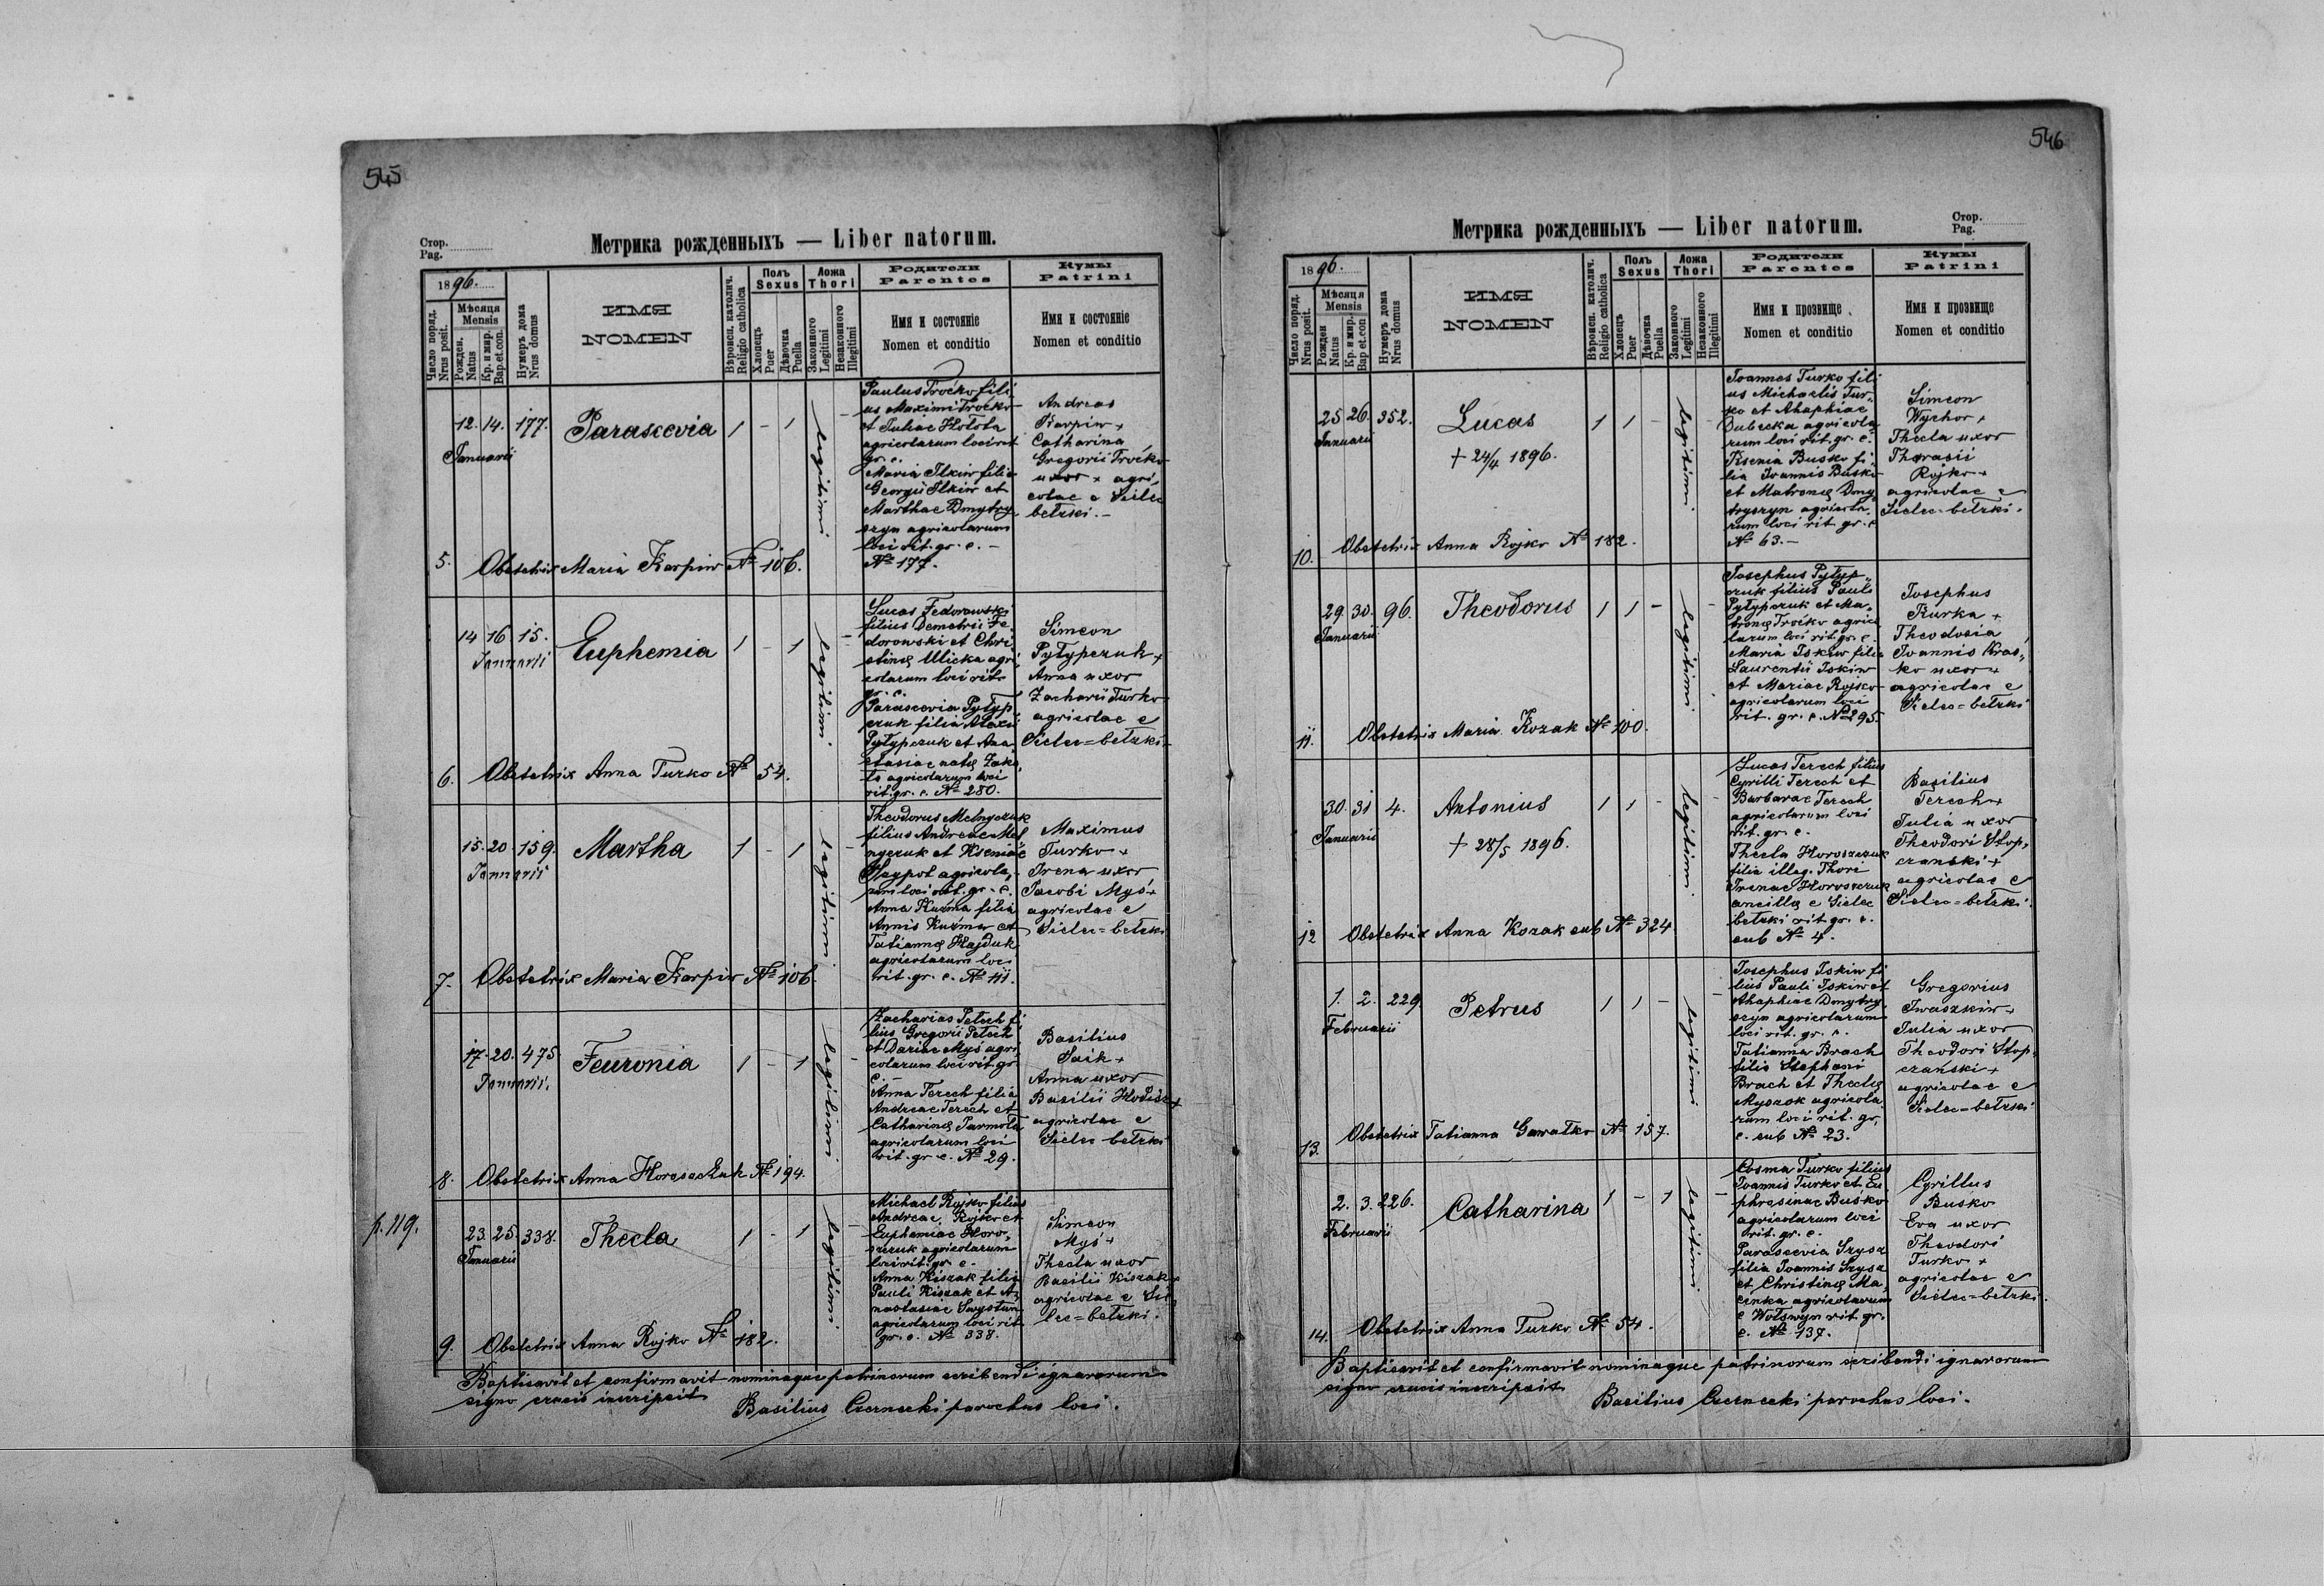 545
Метрика рожденныхъ — Liber natorum.
Стор.
Pag.
1896.
Число поряд.
Nrus posit.
Мѣсяця
Mensis
Рожден.
Natus
Кр. и мир.
Bap. et. con.
Нумеръ дома
Nrus domus
ИМЯ
NOMEN
Вѣроисп. католич.
Religio catholica
Полъ
Sexus
Хлопецъ
Puer
Дѣвочка
Puella
Ложа
Thori
Законного
Legitimi
Незаконного
Illegitimi
Родители
Parentes
Имя и состояніе
Nomen et conditio
Кумы
Patrini
Имя и состояніе
Nomen et conditio
5.
12. 14. 177.
Januarii
Parascevia
1 - 1
legitimi
Paulus Troćko fili,
us Maximi Troćko
et Juliae Holota
agricolarum loci rit
gr. c.
Maria Ilkiw filia
Georgii Ilkiw et
Marthae Dmytry
szyn agricolarum
loci rit. gr. c. -
No 177.
Andreas
Karpiw +
Catharina
Gregorii Troćko
uxor + agri,
colae e Sielec
bełzki. -
Obstetrix Maria Karpiw No 106.
6.
14 16 15.
Januarii
Euphemia
1 - 1
legitimi
Lucas Fedorowski
filius Demetrii Fe
dorowski et Chri
stinę Ulicka agri
colarum loci rit.
gr. c.
Parascevia Pyłyp
czuk filia Alexii
Pyłypczuk et Ana
stasiae natę
agricolarum loci
rit. gr. c. No 280.
Simeon
Pyłypczuk +
Anna uxor
Zacharii Turko
agricolae e
Sielec=bełzki.
Obstetrix Anna Turko No 54.
7.
15. 20. 159.
Januarii
Martha
1 - 1
legitimi
Theodorus Melnyczuk
filius Andreae Mel
nyczuk et Kseniae
agricola,
rum loci rit. gr. c.
Anna Kuźma filia
Annis Kuźma et
Tatiannę Hajduk
agricolarum loci
rit. gr. c. No 111.
Maximus
Turko +
Irena uxor
Jacobi Myś +
agricolae e
Sielec=bełzki
Obstetrix Maria Karpiw No 106.
8.
17. 20. 475
Januarii.
Feuronia
1 - 1
legitimi
Zacharias Pełech fi
lius Gregorii Pełech
et Dariae Myś agri
colarum loci rit. gr
c. -
Anna Terech filia
Andreae Terech et
Catharinę Jarmoła
agricolarum loci
rit. gr. c. No 29.
Basilius
Saik +
Anna uxor
Basilii
agricolae e
Sielec bełzki
Obstetrix Anna Horoszczuk No 194.
p. 119.
9.
23. 25. 338.
Januarii
Thecla
1 - 1
legitimi
Michael Rojko filius
Andreae Rojko et
Euphemiae Horo,
szczuk agricolarum
loci rit. gr. c.
Anna Kiszak filia
Pauli Kiszak et A,
nastasiae Swystun
agricolarum loci rit.
gr. c. No 338.
Simeon
Myś +
Thecla uxor
Basilii Kiszak +
agricolae e Sie,
lec=bełzki.
Obstetrix Anna Rojko No 182.
Baptisavit et confirmavit nominaque patrinorum scribendi ignarorum
signo crucis inscripsit
Basilius Czernecki parochus loci.
546
Метрика рожденныхъ — Liber natorum.
Стор.
Pag.
1896.
Число поряд.
Nrus posit.
Мѣсяця
Mensis
Рожден
Natus
Кр. и мир.
Bap et. con
Нумеръ дома
Nrus domus
ИМЯ
NOMEN
Вѣроисп. католич.
Religio catholica
Полъ
Sexus
Хлопецъ
Puer
Дѣвочка
Puella
Ложа
Thori
Законного
Legitimi
Незаконного
Illegitimi
Родители
Parentes
Имя и прозвище
Nomen et conditio
Кумы
Patrini
Имя и прозвище
Nomen et conditio
10.
25 26. 352.
Januarii
Lucas
+ 24/4 1896.
1 1 -
legitimi
Joannes Turko fili
us Michaelis Tur,
ko et Ahaphiae
Dubecka agricola
rum loci rit. gr. c.
Ksenia Busko fi
lia Joannis Busko
et Matronę Dmy
tryszyn agricola
rum loci rit. gr. c
No 63. -
Simeon
Wychor +
Thecla uxor
Tharasii
Rojko +
agricolae e
Sielec-bełzki.
Obstetrix Anna Rojko No 182.
11.
29. 30. 96.
Januarii
Theodorus
1 1 -
legitimi
Josephus Pyłyp,
czuk filius Pauli
Pyłypczuk et Ma,
tronę Troćko agrico
larum loci rit. gr. c.
Maria Iskiw filia
Laurentii Iskiw
et Mariae Rojko
agricolarum loci
rit. gr. c. No 295.
Josephus
Kurka +
Theodosia
Joannis Kras,
ko uxor +
agricolae e
Sielec=bełzki
Obstetrix Maria Kozak No 100.
12
30. 31 4.
Januarii
Antonius
+ 28/5 1896.
1 1 -
legitimi
Lucas Terech filius
Cyrilli Terech et
Barbarae Terech
agricolarum loci
rit. gr. c.
Thecla Horoszczuk
filia illeg. Thori
Irenae Horoszczuk
ancillę e Sielec
bełzki rit. gr. c.
sub No 4.
Basilius
Terech +
Julia uxor
Theodori Stop,
czanski +
agricolae e
Sielec=bełzki.
Obstetrix Anna Kozak sub No 324
13.
1. 2. 229
Februarii
Petrus
1 1 -
legitimi
Josephus Iskiw fi
lius Pauli Iskiw et
Ahaphiae Dmytry,
szyn agricolarum
loci rit. gr. c.
Tatianna Brach
filia Stephani
Brach et Theclę
Myszok agricola
rum loci rit. gr.
c. sub No 23.
Gregorius
Iwaszkiw +
Julia uxor
Theodori Stop,
czański +
agricolae e
Sielec=bełzki
Obstetrix Tatianna Gawałko No 157.
14.
2. 3. 226.
Februarii
Catharina
1 - 1
legitimi
Cosma Turko filius
Joannis Turko et Eu
phrosinae Busko
agricolarum loci
rit. gr. c.
Parascevia Szysz
filia Joannis Szysz
et Christinę Ma,
cinka agricolarum
e Wołswyn rit. gr.
c. No 137.
Cyrillus
Busko
Eva uxor
Theodori
Turko +
agricolae e
Sielec=bełzki.
Obstetrix Anna Turko No 54.
Baptisavit et confirmavit nominaque patrinorum scribendi ignarorum
signo crucis inscripsit
Basilius Czernecki parochus loci.